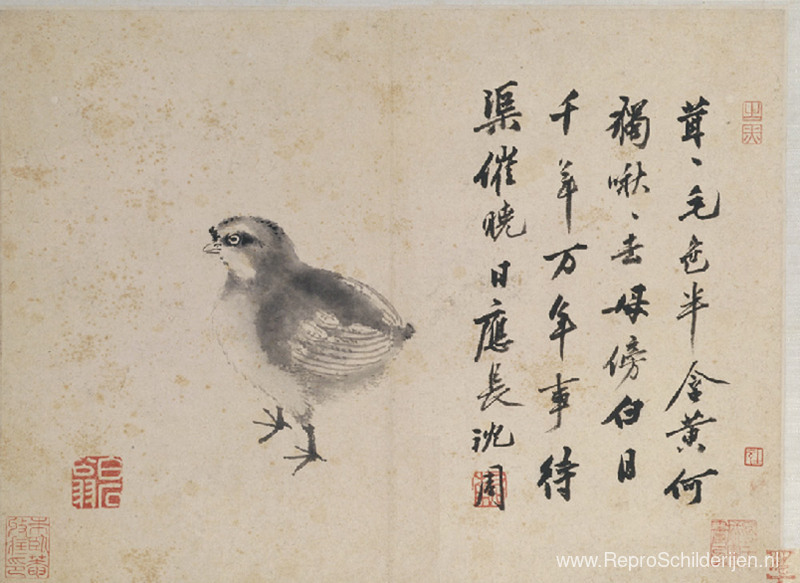 茸〻毛色半含黃何
獨啾〻去母傍白日
千年万年事待
渠催曉日應長沈周
白石翁
www.ReproSchilderijen.nl